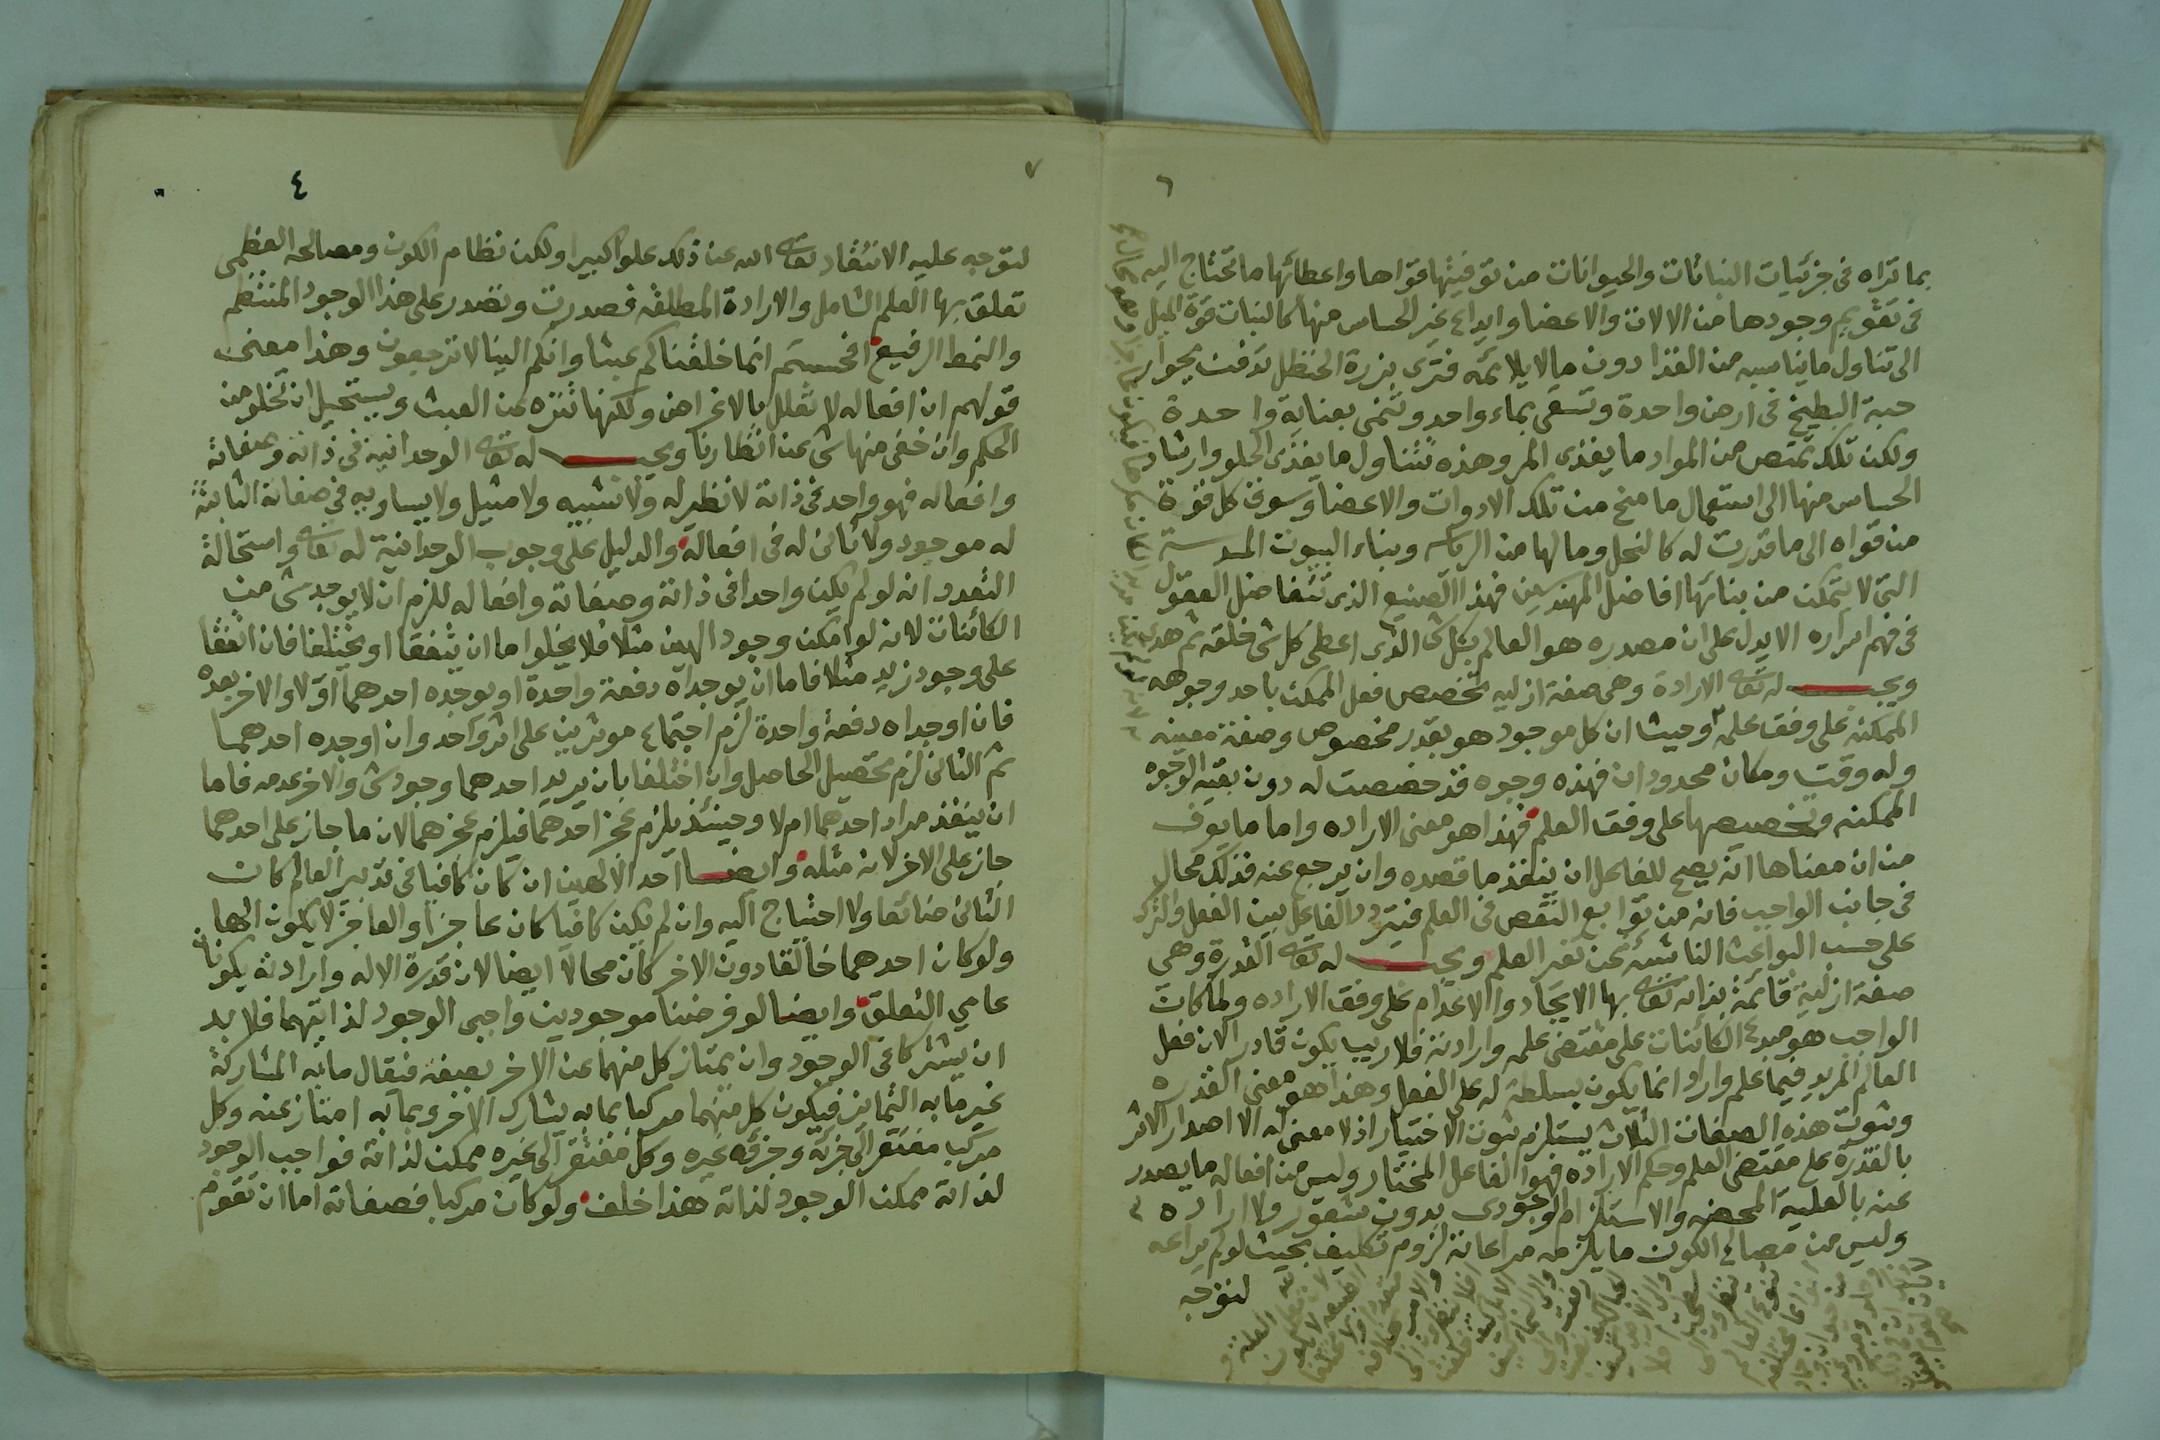 ٦
بما تراه فى جزئيات النباتات والحيوانات من توفيتها قواها واعطائها ما تحتاج اليه
فى تقويم وجودها من الالات والاعضا وايداع غير الحساس منها كالنبات قوة الميل
الى تناول ما يناسبه من الغذا دون ما لا يلائمه فترى بزرة الحنظل تدفن بجوار
حبة البطيخ فى ارض واحدة وتسقى بماء واحد وتنمى بعناية واحدة
ولكن تلك تمتص من المواد ما يغذى المر وهذه تتناول ما يغذى الحلو وارشاد
الحساس منها الى استعمال ما منح من تلك الادوات والاعضا وسوق كل قوة
من قواه الى ما قدرت له كالنحل وما لها من الرياسه وبناء البيوت المسدسة
التى لا تتمكن من بنائها افاضل المهندسين فهذا الصنيع الذى تتفاضل العقول
فى فهم اسراره الا يدل على ان مصدره هو العالم بكل شى الذى اعطى كل شى خلقه ثم هدى
ويجب له تعالى الارادة وهى صفة ازليه تخصص فعل الممكن باحد وجوهه
الممكنه على وفق علمه وحيث ان كل موجود هو بقدر مخصوص وصفة معينه
وله وقت ومكان محدودان فهذه وجوه قد خصصت له دون بقية الوجوه
الممكنه وتخصيصها على وفق العلم فهذا هو معنى الاراده واما ما يعرف
من ان معناها انه يصح للفاعل ان ينفذ ما قصده وان يرجع عنه فذلك محال
فى جانب الواجب فانه من توابع النقص فى العلم فيتردد الفاعل بين الفعل والترك
على حسب البواعث الناشئه عن تغير العلم ويجب له تعالى القدرة وهى
صفة ازلية قائمة بذاته تعالى بها الايجاد والاعدام على وفق الاراده ولما كان
الواجب هو مبدع الكائنات على مقتضى علمه وارادته فلا ريب يكون قادرا لان فعل
العالم المريد فيما علم واراد انما يكون بسلطة له على الفعل وهذا هو معنى القدره
وثبوت هذه الصفات الثلاث يستلزم ثبوت الاختيار اذ لا معنى له الا اصدار الاثر
بالقدرة على مقتضى العلم وحكم الاراده فهو الفاعل المختار وليس من افعاله ما يصدر
عنه بالعلية المحضه والاستلزام الوجودى بدون شعور ولا اراده
وليس من مصالح الكون ما يلزمه مراعاته لزوم تكليف بحيث لو لم يراعه
لتوجه
٧
٤
لتوجه عليه الانتقاد تعالى الله عن ذلك علوا كبيرا ولكن نظام الكون ومصالحه العظمى
تعلق بها العلم الشامل والارادة المطلقه فصدرت وتصدر على هذا الوجود المنتظم
والنمط الرفيع افحسبتم انما خلقناكم عبثا وانكم الينا لا ترجعون وهذا معنى
قولهم ان افعاله لا تعلل بالاغراض ولكنها تتنزه عن العبث ويستحيل ان تخلو من
الحكم وان خفى منها شى عن انظارنا ويجب له تعالى الوحدانية فى ذاته وصفاته
وافعاله فهو واحد فى ذاته لا نظير له ولا شبيه ولا مثيل ولا يساويه فى صفاته الثابتة
له موجود ولا ثانى له فى افعاله والدليل على وجوب الوحدانية له تعالى واستحالة
التعدد انه لو لم يكن واحدا فى ذاته وصفاته وافعاله للزم ان لا يوجد شى من
الكائنات لانه لو امكن وجود الهين مثلا فلا يخلوا ما ان يتفقا او يختلفا فان اتفقا
على وجود زيد مثلا فاما ان يوجداه دفعة واحدة او يوجده احدهما اولا والاخر بعده
فان اوجداه دفعة واحدة لزم اجتماع موثرين على اثر واحد وان اوجده احدهما
ثم الثانى لزم تحصيل الحاصل وان اختلفا بان يريد احدهما وجود شى والاخر عدمه فاما
ان ينفذ مراد احدهما ام لا وحينئذ يلزم عجز احدهما فيلزم عجزهما لان ما جاز على احدهما
جاز على الاخر لانه مثله وايضا احد الالهين ان كان كافيا فى تدبير العالم كان
الثانى ضائعا ولا احتياج اليه وان لم يكن كافيا كان عاجزا والعاجز لا يكون الها
ولو كان احدهما خالقا دون الاخر كان محالا ايضا لان قدرة الاله وارادته يكونان
عامى التعلق وايضا لو فرضنا موجودين واجبى الوجود لذاتيهما فلا بد
ان يشتركا فى الوجود وان يمتاز كل منهما عن الاخر بصفه فنقال ما به المشاركة
غير ما به التمايز فيكون كل منهما مركبا بما به يشارك الاخر وبما به امتاز عنه وكل
مركب مفتقر الى جزئه وجزؤه غيره وكل مفتقر الى غيره ممكن لذاته فواجب الوجود
لذاته ممكن الوجود لذاته هذا خلف ولو كان مركبا فصفاته اما ان تقوم